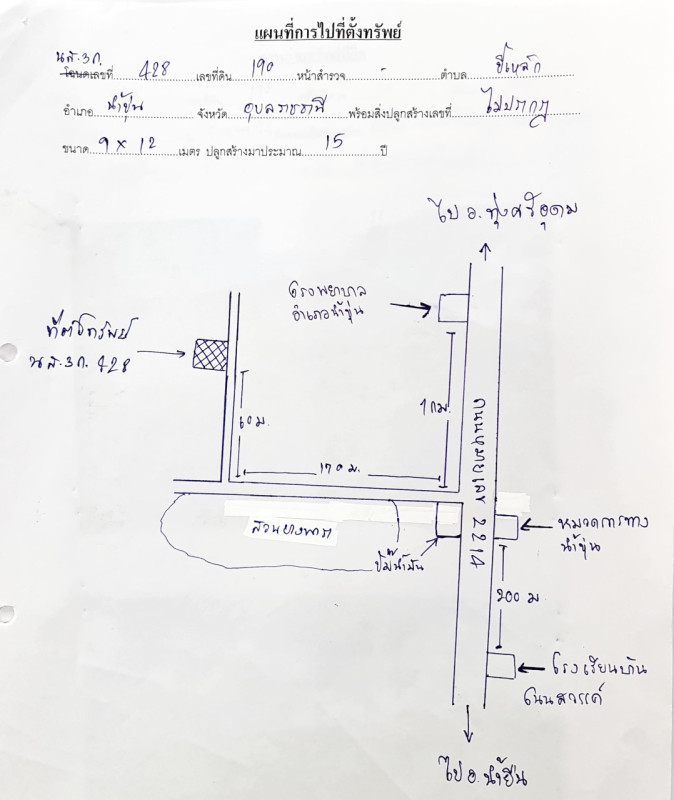 แผนที่การไปที่ตั้งทรัพย์
นส.3ก.
โฉนดเลขที่ 428 เลขที่ดิน 190 หน้าสำรวจ - ตำบล ขี้เหล็ก
อำเภอ น้ำขุ่น จังหวัด อุบลราชธานี พร้อมสิ่งปลูกสร้างเลขที่ ไม่ปรากฏ
ขนาด 9 x 12 เมตร ปลูกสร้างมาประมาณ 15 ปี
ไป อ.ทุ่งศรีอุดม
โรงพยาบาล
อำเภอน้ำขุ่น
ที่ตั้งทรัพย์
นส.3ก. 428
1 กม.
60 ม.
170 ม.
ถนนหมายเลข 2214
สวนยางพารา
ปั๊มน้ำมัน
หมวดการทาง
น้ำขุ่น
200 ม
โรงเรียนบ้าน
โนนสวรรค์
ไป อ.น้ำยืน